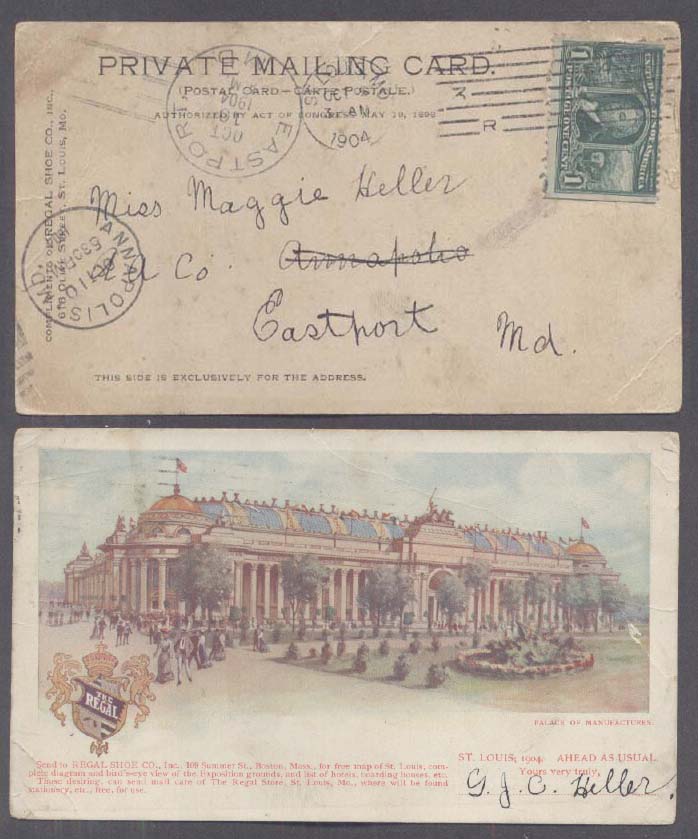 PRIVATE MAILING CARD.
(POSTAL CARD — CARTE POSTALE.)
AUTHORIZED BY ACT OF CONGRESS MAY 19, 1898
EASTPORT
OCT
1904
MD.
30
AM
1904
R
UNITED STATES OF AMERICA
1 1
COMPLIMENTS OF REGAL SHOE CO., INC.,
618 OLIVE STREET, ST. LOUIS, MO.
Miss Maggie Heller
A A Co. Annapolis
Eastport Md.
ANNAPOLIS
OCT 10
MD.
THIS SIDE IS EXCLUSIVELY FOR THE ADDRESS.
THE
REGAL
PALACE OF MANUFACTURES.
Send to REGAL SHOE CO., Inc., 109 Summer St., Boston, Mass., for free map of St. Louis, com-
plete diagram and bird's-eye view of the Exposition grounds, and list of hotels, boarding houses, etc.
Those desiring, can send mail care of The Regal Store, St. Louis, Mo., where will be found
stationery, etc., free, for use.
ST. LOUIS, 1904. AHEAD AS USUAL.
Yours very truly,
G. J. C. Heller.